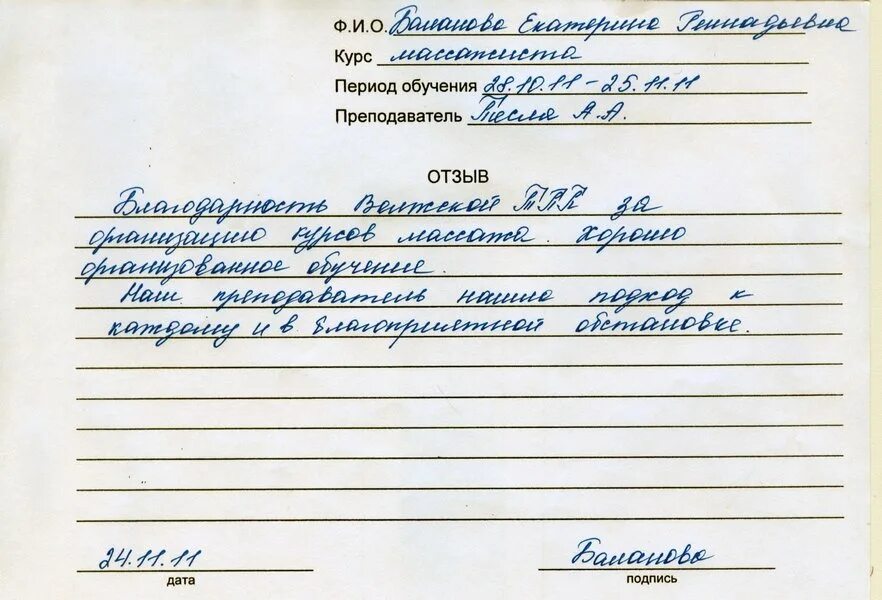 Ф.И.О. Баланова Екатерина Геннадьевна
Курс массажиста
Период обучения 28.10.11 – 25.11.11
Преподаватель Тесля А.А.
ОТЗЫВ
Благодарность Волжской ТПП за
организацию курсов массажа. Хорошо
организованное обучение.
Наш преподаватель нашла подход к
каждому и в благоприятной обстановке.
24.11.11 Баланова
дата подпись